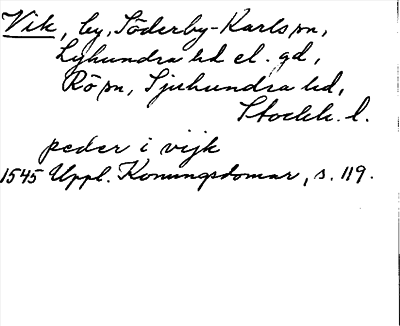 Vik, by, Söderby-Karls sn,
Lyhundra hd el. gd,
Rö sn, Sjuhundra hd,
Stockh. l.
peder i vijk
1545 Uppl. Konungsdomar, s. 119.